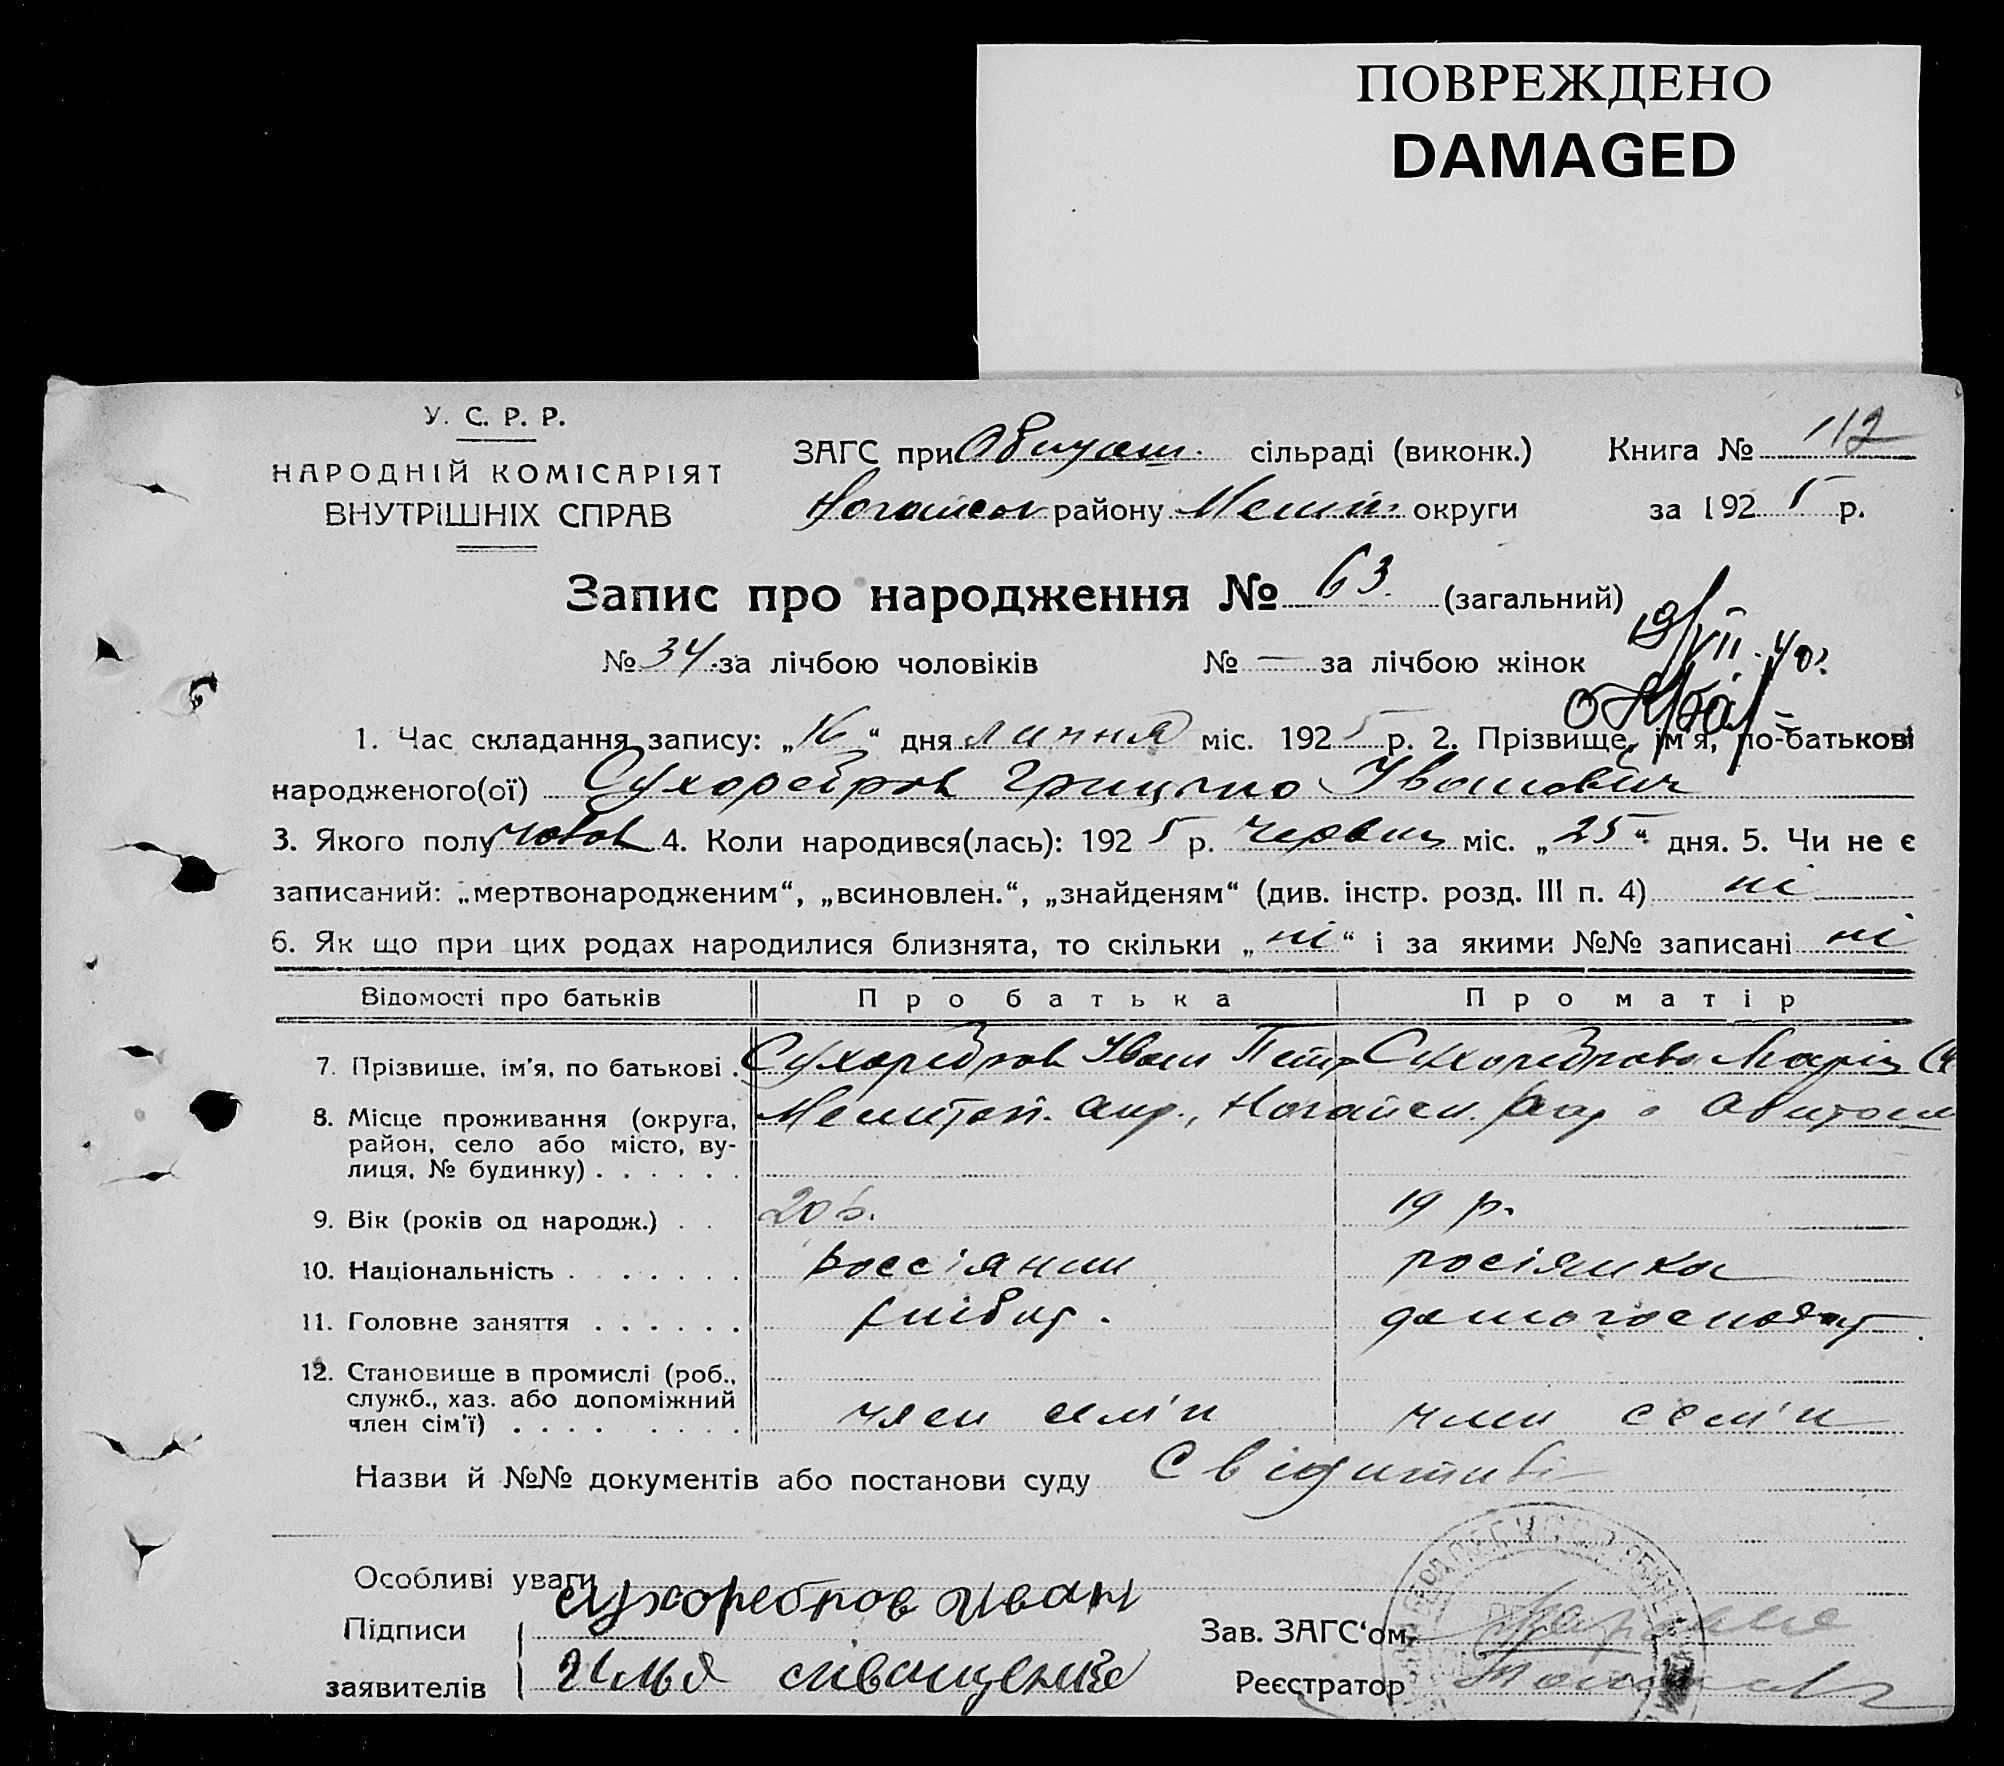 ПОВРЕЖДЕНО
DAMAGED
У. С. Р. Р.
НАРОДНІЙ КОМІСАРІЯТ
ВНУТРІШНІХ СПРАВ
ЗАГС при сільраді (виконк.) Книга № 112
району Меліт округи за 1925 р.
Запис про народження № 63. (загальний)
№ 34. за лічбою чоловіків № — за лічбою жінок
19/VII-40
1. Час складання запису: „16“ дня липня міс. 1925 р. 2. Прізвище, ім'я, по-батькові
народженого(ої) Сухоребров Грицько Іванович
3. Якого полу чолов 4. Коли народився(лась): 1925 р. червня міс. „25“ дня. 5. Чи не є
записаний: „мертвонародженим“, „всиновлен.“, „знайденям“ (див. інстр. розд. III п. 4) ні
6. Як що при цих родах народилися близнята, то скільки „ні“ і за якими №№ записані ні
Відомості про батьків Про батька Про матір
7. Прізвище, ім'я, по батькові . Сухоребров Іван Петр Сухореброва Марія
8. Місце проживання (округа, район, село або місто, вулиця, № будинку) . . . . . . Мелитоп. окр., Ногайськ. рай с
9. Вік (років од народж.) . . 20 р. 19 р.
10. Національність . . . . . . . россіянин росіянка
11. Головне заняття . . . . . . хлібор. домогосподар
12. Становище в промислі (роб., служб., хаз. або допоміжний член сім'ї) . . . . . . . . член сем'и член сем'и
Назви й №№ документів або постанови суду Свідитиві
Особливі уваги
Підписи Сухоребров Иван Зав. ЗАГС'ом
заявителів Илья Реєстратор